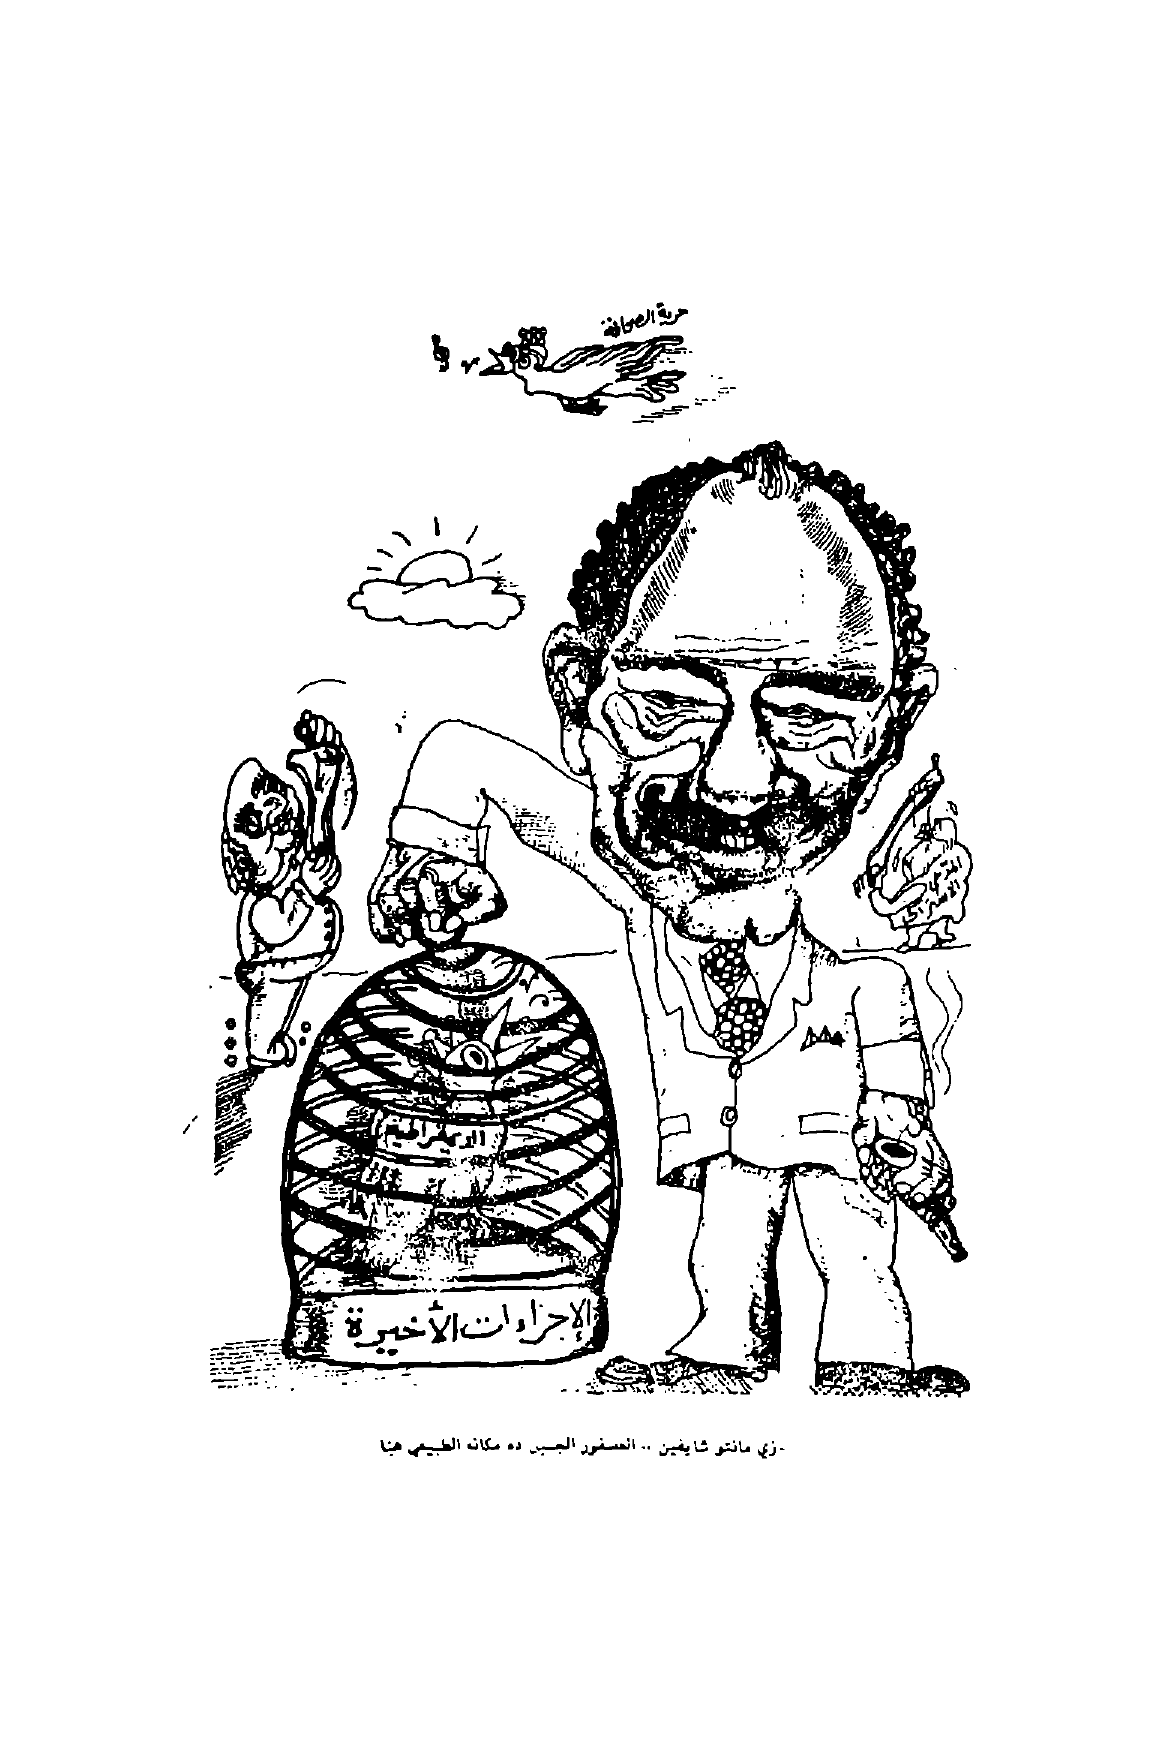 حرية الصحافة
الديمقراطية
الإجراءات الأخيرة
-زي مانتو شايفين .. العصفور الجميل ده مكانه الطبيعي هنا